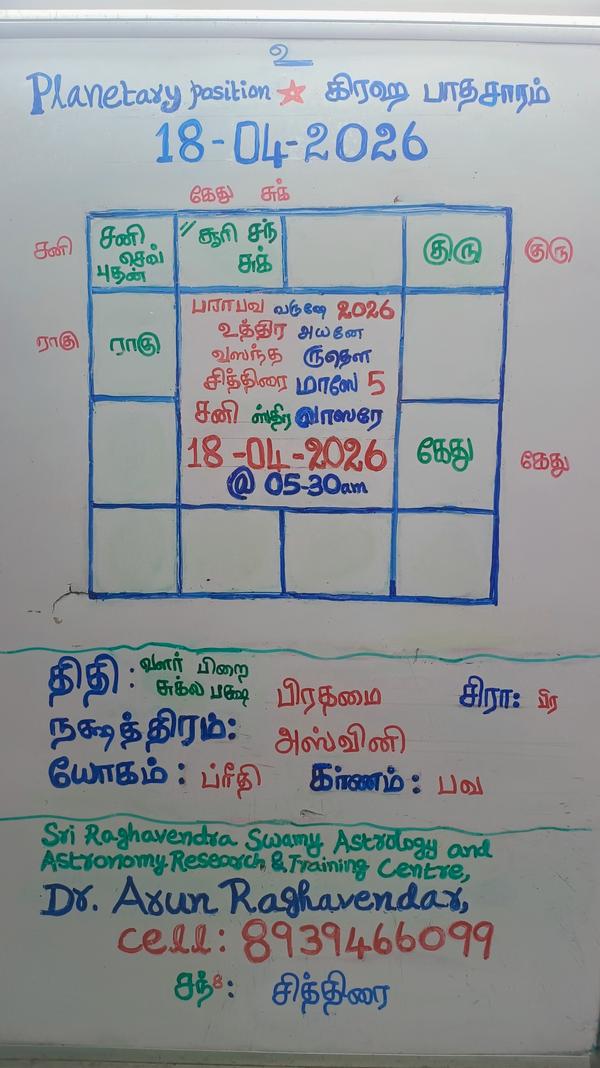 உ
Planetary position கிரஹ பாதசாரம்
18-04-2026
கேது சுக்
சனி
சனி செவ் புதன்
" சூரி சந் சுக்
குரு
குரு
ராகு
ராகு
பராபவ வருஷே 2026
உத்திர அயனே
வஸந்த ருதௌ
சித்திரை மாஸே 5
சனி ஸ்திர வாஸரே
18-04-2026
@ 05-30am
கேது
கேது
திதி : வளர் பிறை சுக்ல பக்ஷ பிரதமை சிரா:
நக்ஷத்திரம்: அஸ்வினி
யோகம் : ப்ரீதி கர்ணம் : பவ
Sri Raghavendra Swamy Astrology and
Astronomy Research & Training Centre,
Dr. Arun Raghavendar,
Cell: 8939466099
சந்8: சித்திரை